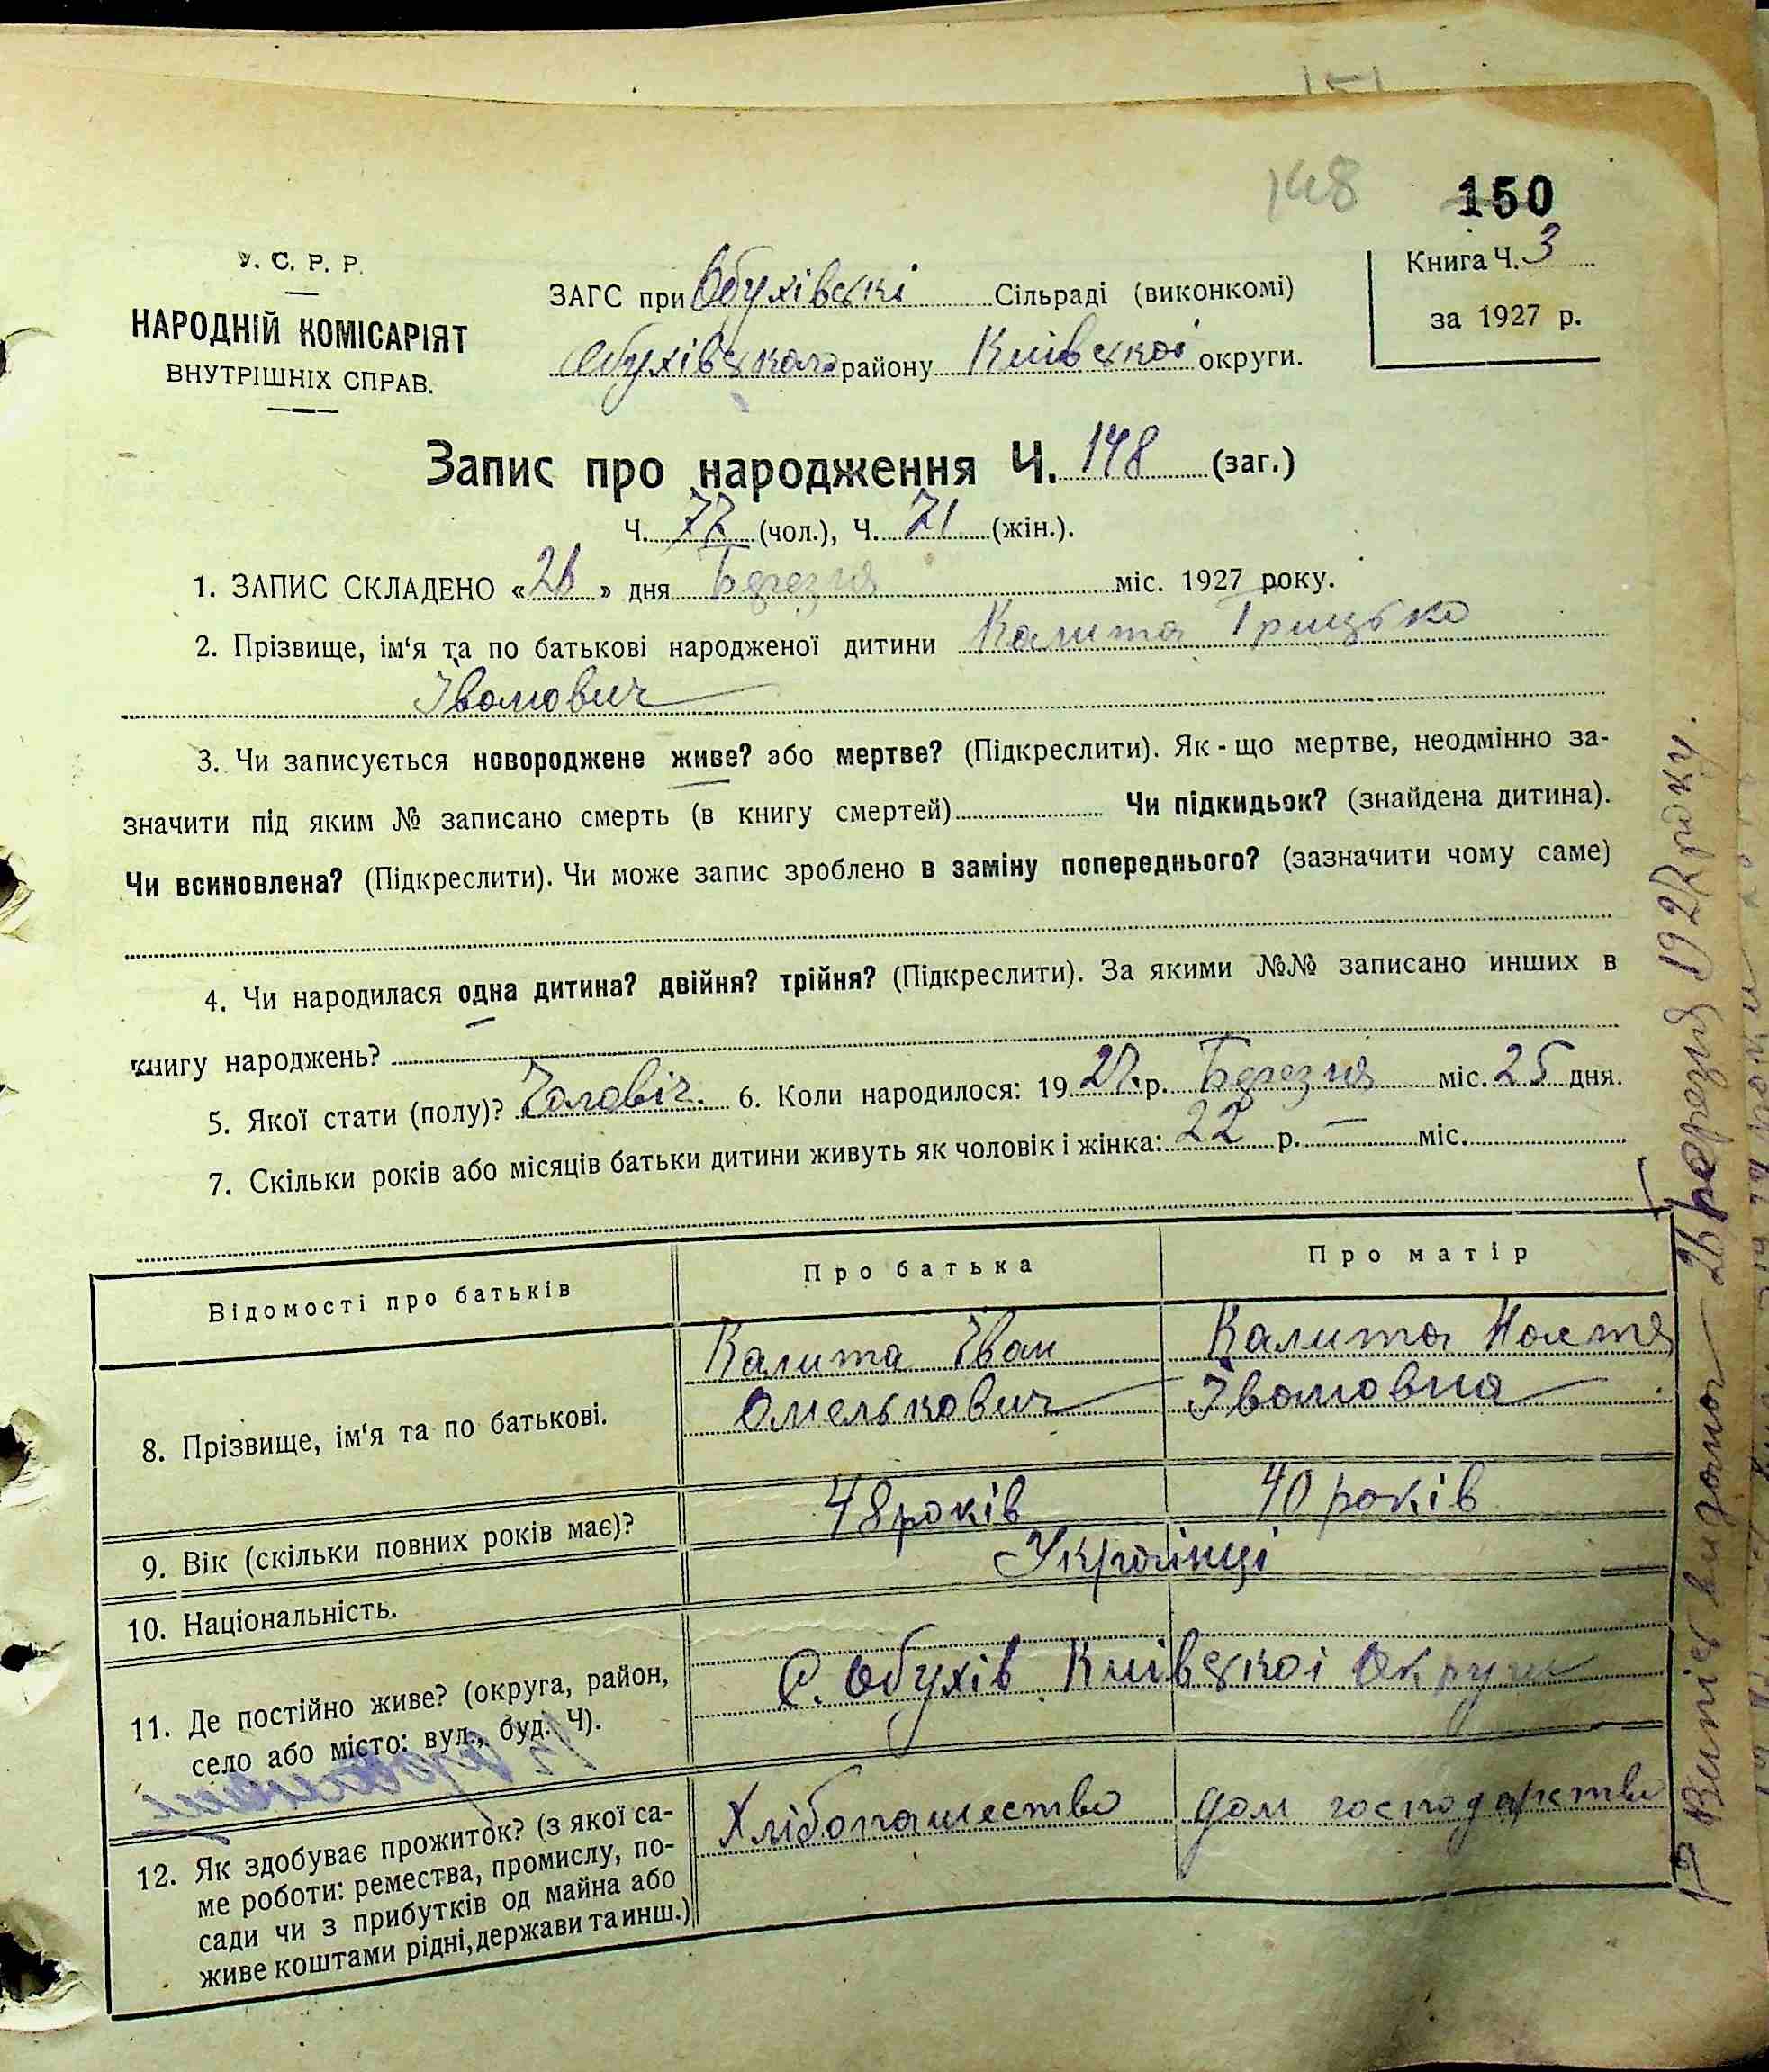 151
148 150
У. С. Р. Р.
НАРОДНІЙ КОМІСАРІЯТ
ВНУТРІШНІХ СПРАВ.
ЗАГС при Обухівські Сільраді (виконкомі)
Обухівського району Київської округи.
Книга Ч. 3
за 1927 р.
Запис про народження Ч. 148 (заг.)
Ч. 77 (чол.), Ч. 71 (жін.).
1. ЗАПИС СКЛАДЕНО «26» дня Березня міс. 1927 року.
2. Прізвище, ім‘я та по батькові народженої дитини Калита Грицько
Іванович
3. Чи записується новороджене живе? або мертве? (Підкреслити). Як-що мертве, неодмінно за-
значити під яким № записано смерть (в книгу смертей) Чи підкидьок? (знайдена дитина).
Чи всиновлена? (Підкреслити). Чи може запис зроблено в заміну попереднього? (зазначити чому саме)
4. Чи народилася одна дитина? двійня? трійня? (Підкреслити). За якими №№ записано инших в
книгу народжень?
5. Якої стати (полу)? Чоловіч. 6. Коли народилося: 1927 р. Березня міс. 25 дня.
7. Скільки років або місяців батьки дитини живуть як чоловік і жінка: 22 р. — міс.
Відомості про батьків Про батька Про матір
8. Прізвище, ім‘я та по батькові. Калита Іван Калита Настя
Омелькович Івановна
9. Вік (скільки повних років має)? 48 років 40 років
10. Національність. Українці
11. Де постійно живе? (округа, район,
село або місто: вул., буд. Ч). С. Обухів Київської Округи
12. Як здобуває прожиток? (з якої са-
ме роботи: ремества, промислу, по-
сади чи з прибутків од майна або
живе коштами рідні, держави та инш.) Хлібопашество дом господарство
Витяг видано 26 березня 1927 року.